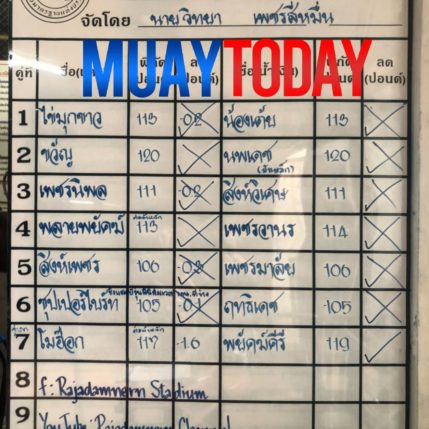 จัดโดย นายวิทยา เพชรสี่หมื่น
MUAYTODAY
คู่ที่ พิกัด (ปอนด์) ลด (ปอนด์)
1 ไข่มุกขาว 113 -0.2 น้องเดียว 113
2 ขวัญ 120 นพเดช 120
3 เพชรนิพล 111 -0.2 สิงห์วิเศษ 111
4 พลายพยัคฆ์ 113 เพชรวานร 114
5 สิงห์เพชร 106 -0.2 เพชรมาลัย 106
6 ซุปเปอร์ไบร์ท 105 -0.1 ฤทธิเดช -105
7 โมฮ็อก 117 -1.6 พยัคฆ์คีรี 119
8 f: Rajadamnern Stadium
9 YouTube: Rajadamnern